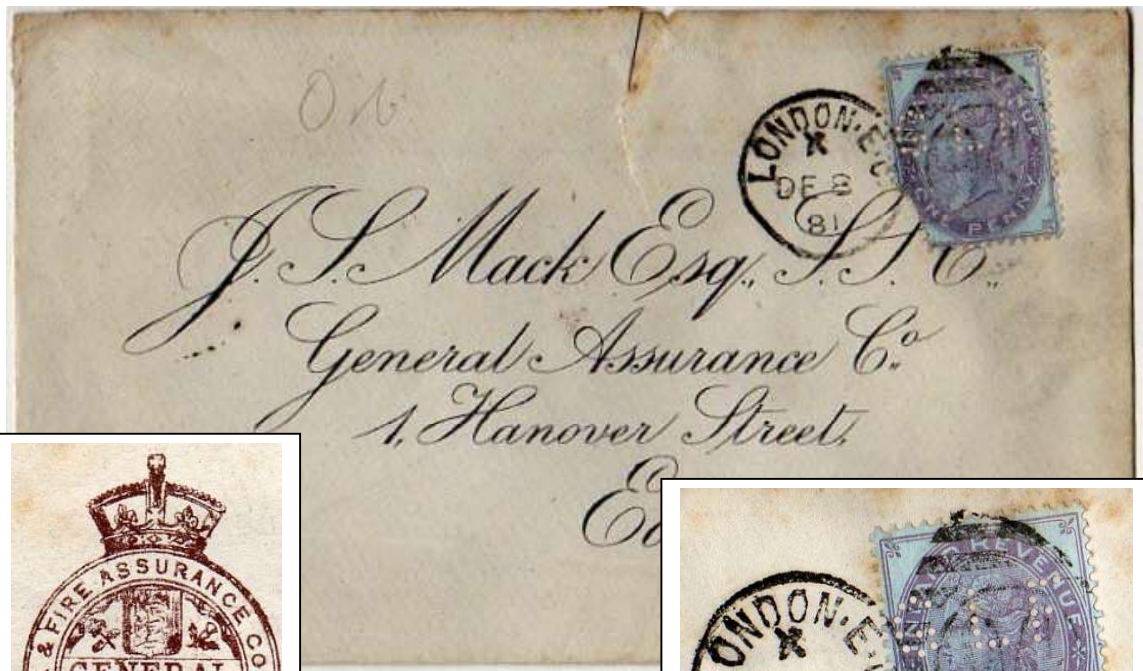 O
LONDON·E.C
X
DE 8
81
INLAND REVENUE
ONE PENNY
J. S. Mack Esq., S.S.C.,
General Assurance Co.
1, Hanover Street,
& FIRE ASSURANCE CO
GENERAL
LONDON·E
X
INLAND REVENUE